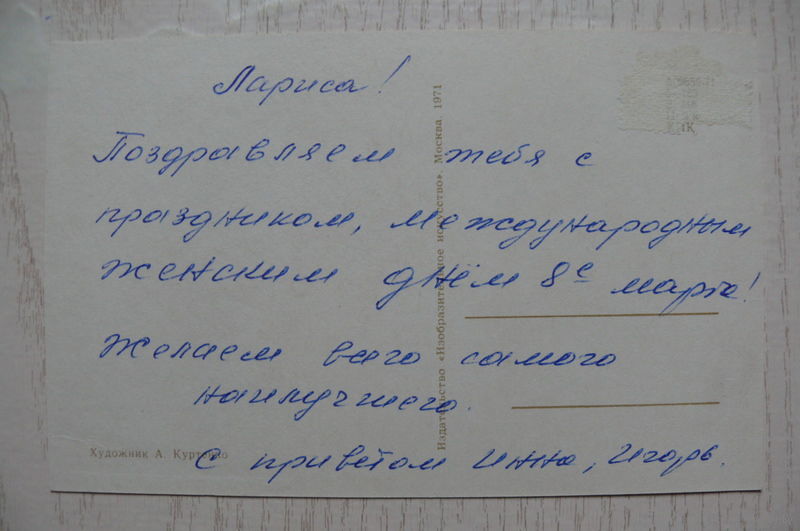 Лариса!
Поздравляем тебя с
праздником, международным
женским днём 8е марта!
Желаем всего самого
наилучшего.
С приветом Инна, Игорь.
Издательство «Изобразительное искусство». Москва. 1971
Художник А.